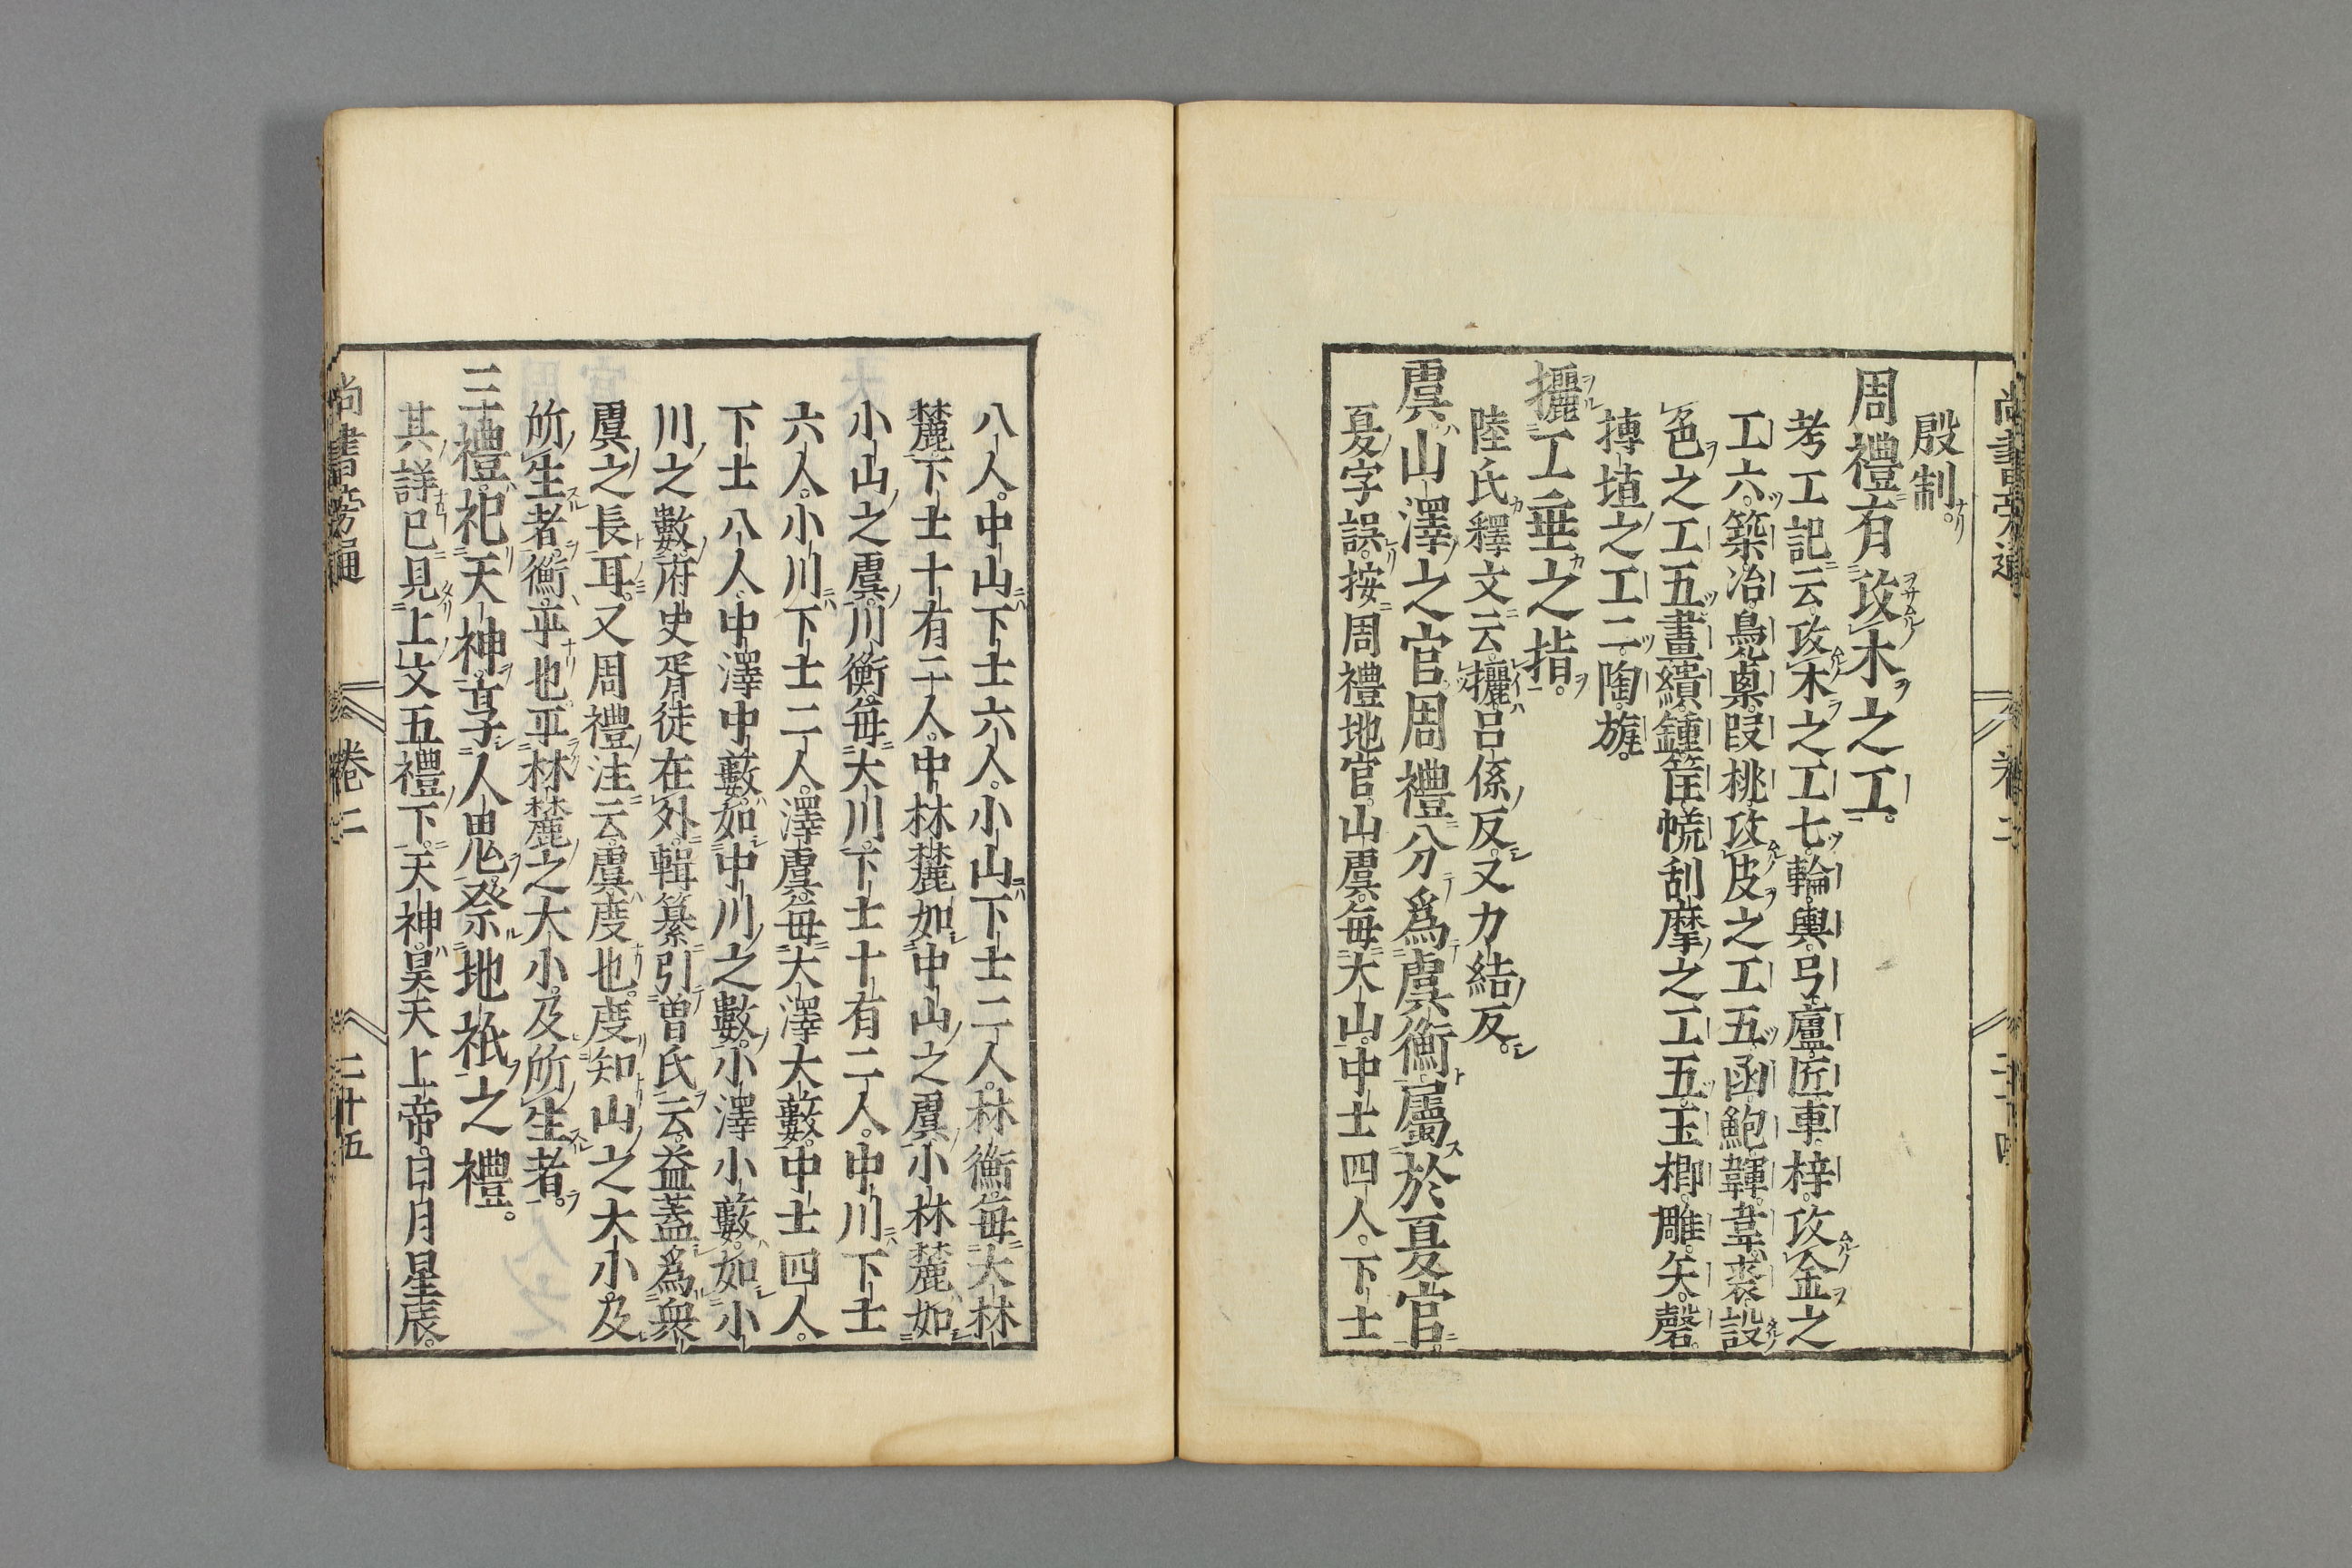 殷制。
周禮有攻木之工。
考工記云。攻木之工七。輪輿弓廬匠車梓。攻金之
工六。築冶鳧㮚段桃。攻皮之工五。函鮑韗韋裘。設
色之工五。畫繢鍾筐㡛。刮摩之工五。玉楖雕矢磬。
摶埴之工二。陶旊。
攦工垂之指。
陸氏釋文云。攦呂係反。又力結反。
虞。山澤之官。周禮分爲虞衡。屬於夏官。
夏字誤。按周禮地官。山虞。每大山。中士四人。下士
八人。中山下士六人。小山下士二人。林衡。每大林
麓。下士十有二人。中林麓。如中山之虞。小林麓。如
小山之虞。川衡。每大川。下士十有二人。中川下士
六人。小川下士二人。澤虞。每大澤大藪。中士四人。
下士八人。中澤中藪。如中川之數。小澤小藪。如小
川之數。府史胥徒在外。輯纂引曽氏云。益蓋爲衆
虞之長耳。又周禮注云。虞度也。度知山之大小。及
所生者。衡。平也。平林麓之大小。及所生者。
三禮。祀天神。享人鬼。祭地祇之禮。
其詳已見上文五禮下。天神。昊天上帝。日月星辰。
尚書旁通
卷二
二十五